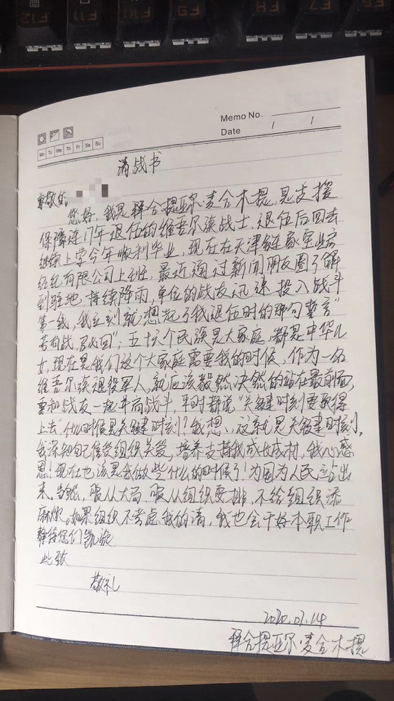 Memo No.
Date / /
Mo Tu We Th Fr Sa Su
请战书
尊敬的
您好，我是拜合提亚尔·麦合木提，是支援
保障连17年退伍的维吾尔族战士，退伍后回去
继续上学今年顺利毕业，现在在天津链家宝业房
经纪有限公司上班，最近通过新闻朋友圈了解
到驻地持续降雨，单位的战友迅速投入战斗
第一线，我立刻就想起了我退伍时的那句誓言“
若有战召必回”，五十六个民族是大家庭，都是中华儿
女，现在是我们这个大家庭需要我的时候，作为一名
维吾尔族退役军人，就应该毅然决然的站在最前面，
重和战友一起并肩战斗，平时都说“关键时刻要顶得
上去”什么时候是关键时刻？我想，这就是关键时刻，
我深知自己倍受组织关爱，培养支持我成长成材，我心感
恩！现在也该是我做些什么的时候了！为国为人民
来，当然，服从大局，服从组织安排，不给组织添
麻烦。如果组织不考虑我的请，我也会干好本职工作
静待您们凯旋
此致
敬礼
2020.07.14
拜合提亚尔·麦合木提